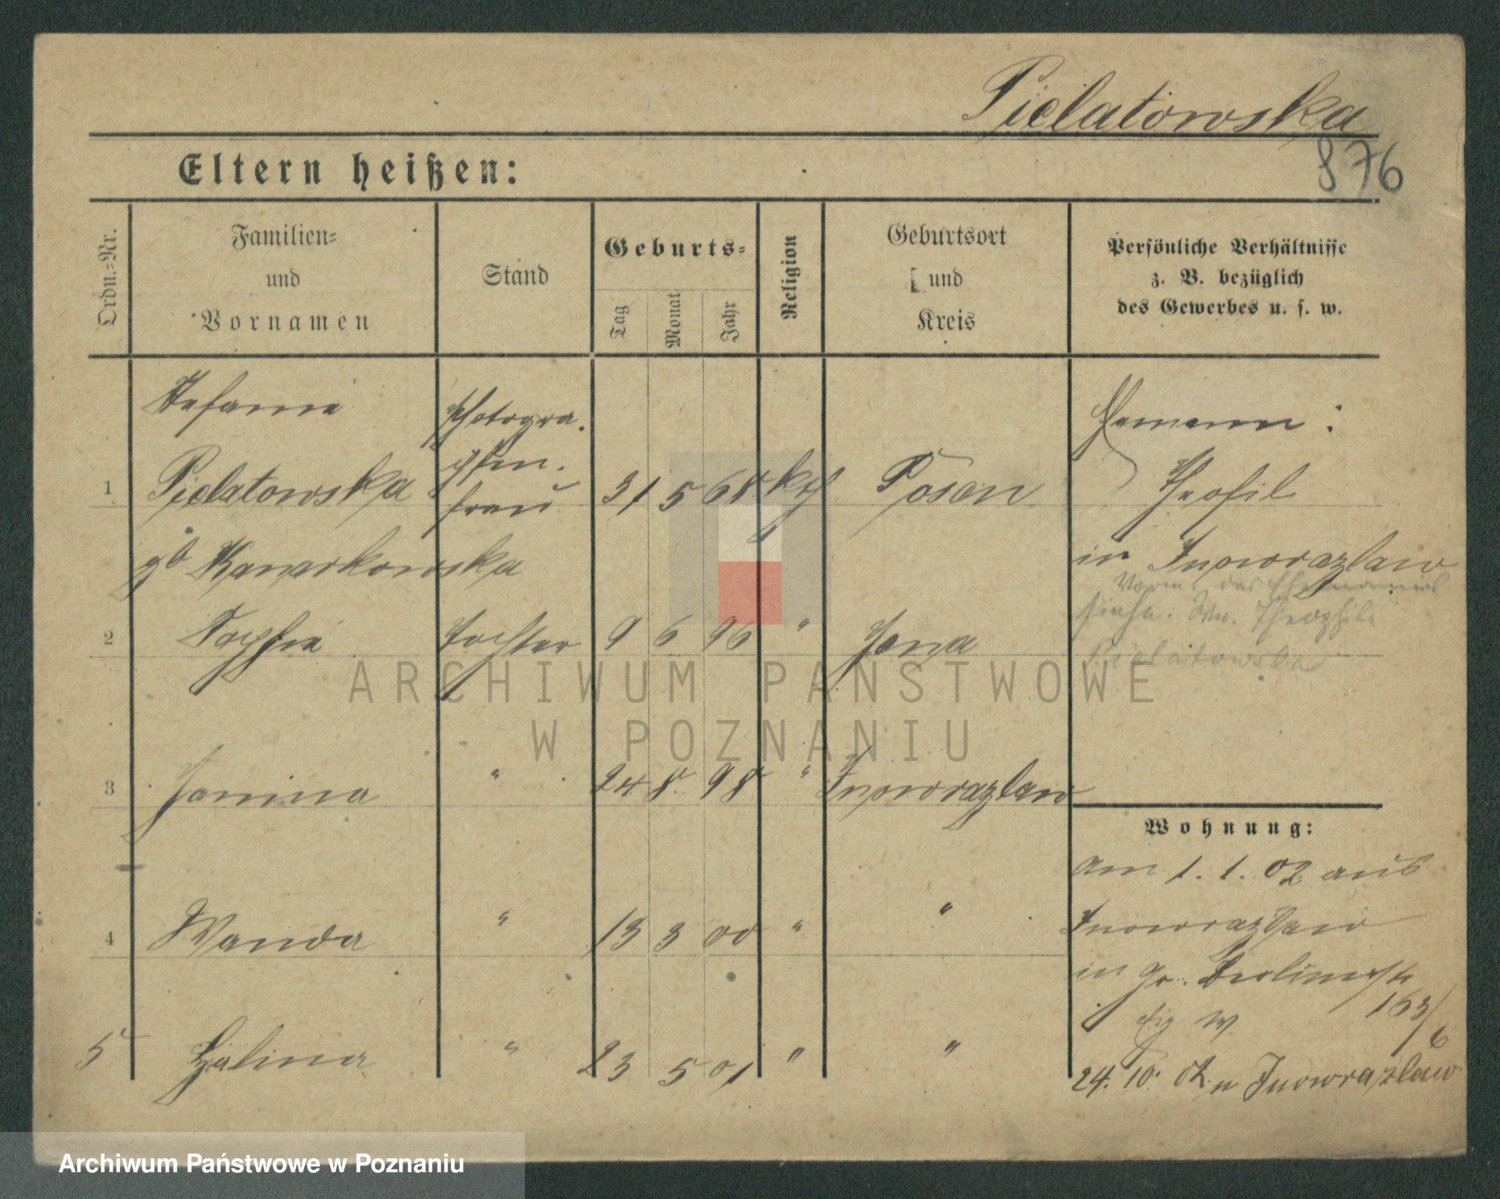 Pielatowska
876
Eltern heißen:
Ordn.-Nr.
Familien-
und
Vornamen
Stand
Geburts-
Tag
Monat
Jahr
Religion
Geburtsort
und
Kreis
Persönliche Verhältnisse
z. B. bezüglich
des Gewerbes u. s. w.
Stefanie Photogra-
1 Pielatowska phen- frau 31 5 68 kth Posen
gb Kanarkowska
2 Sophie Tochter 9 6 96 " Jena
3 Janina " 24 8 98 " Inowrazlaw
4 Wanda " 13 3 00 " "
5 Halina " 23 5 01 " "
Ehemann:
Theofil
in Inowrazlaw
Vorm. des Ehemannes
siehe: Ww. Theophila
Pielatowska
Wohnung:
am 1. 1. 02 aus
Inowrazlaw
in Gr. Berlinerstr
163/6
24. 10. 02 n Inowrazlaw
ARCHIWUM PAŃSTWOWE
W POZNANIU
Archiwum Państwowe w Poznaniu